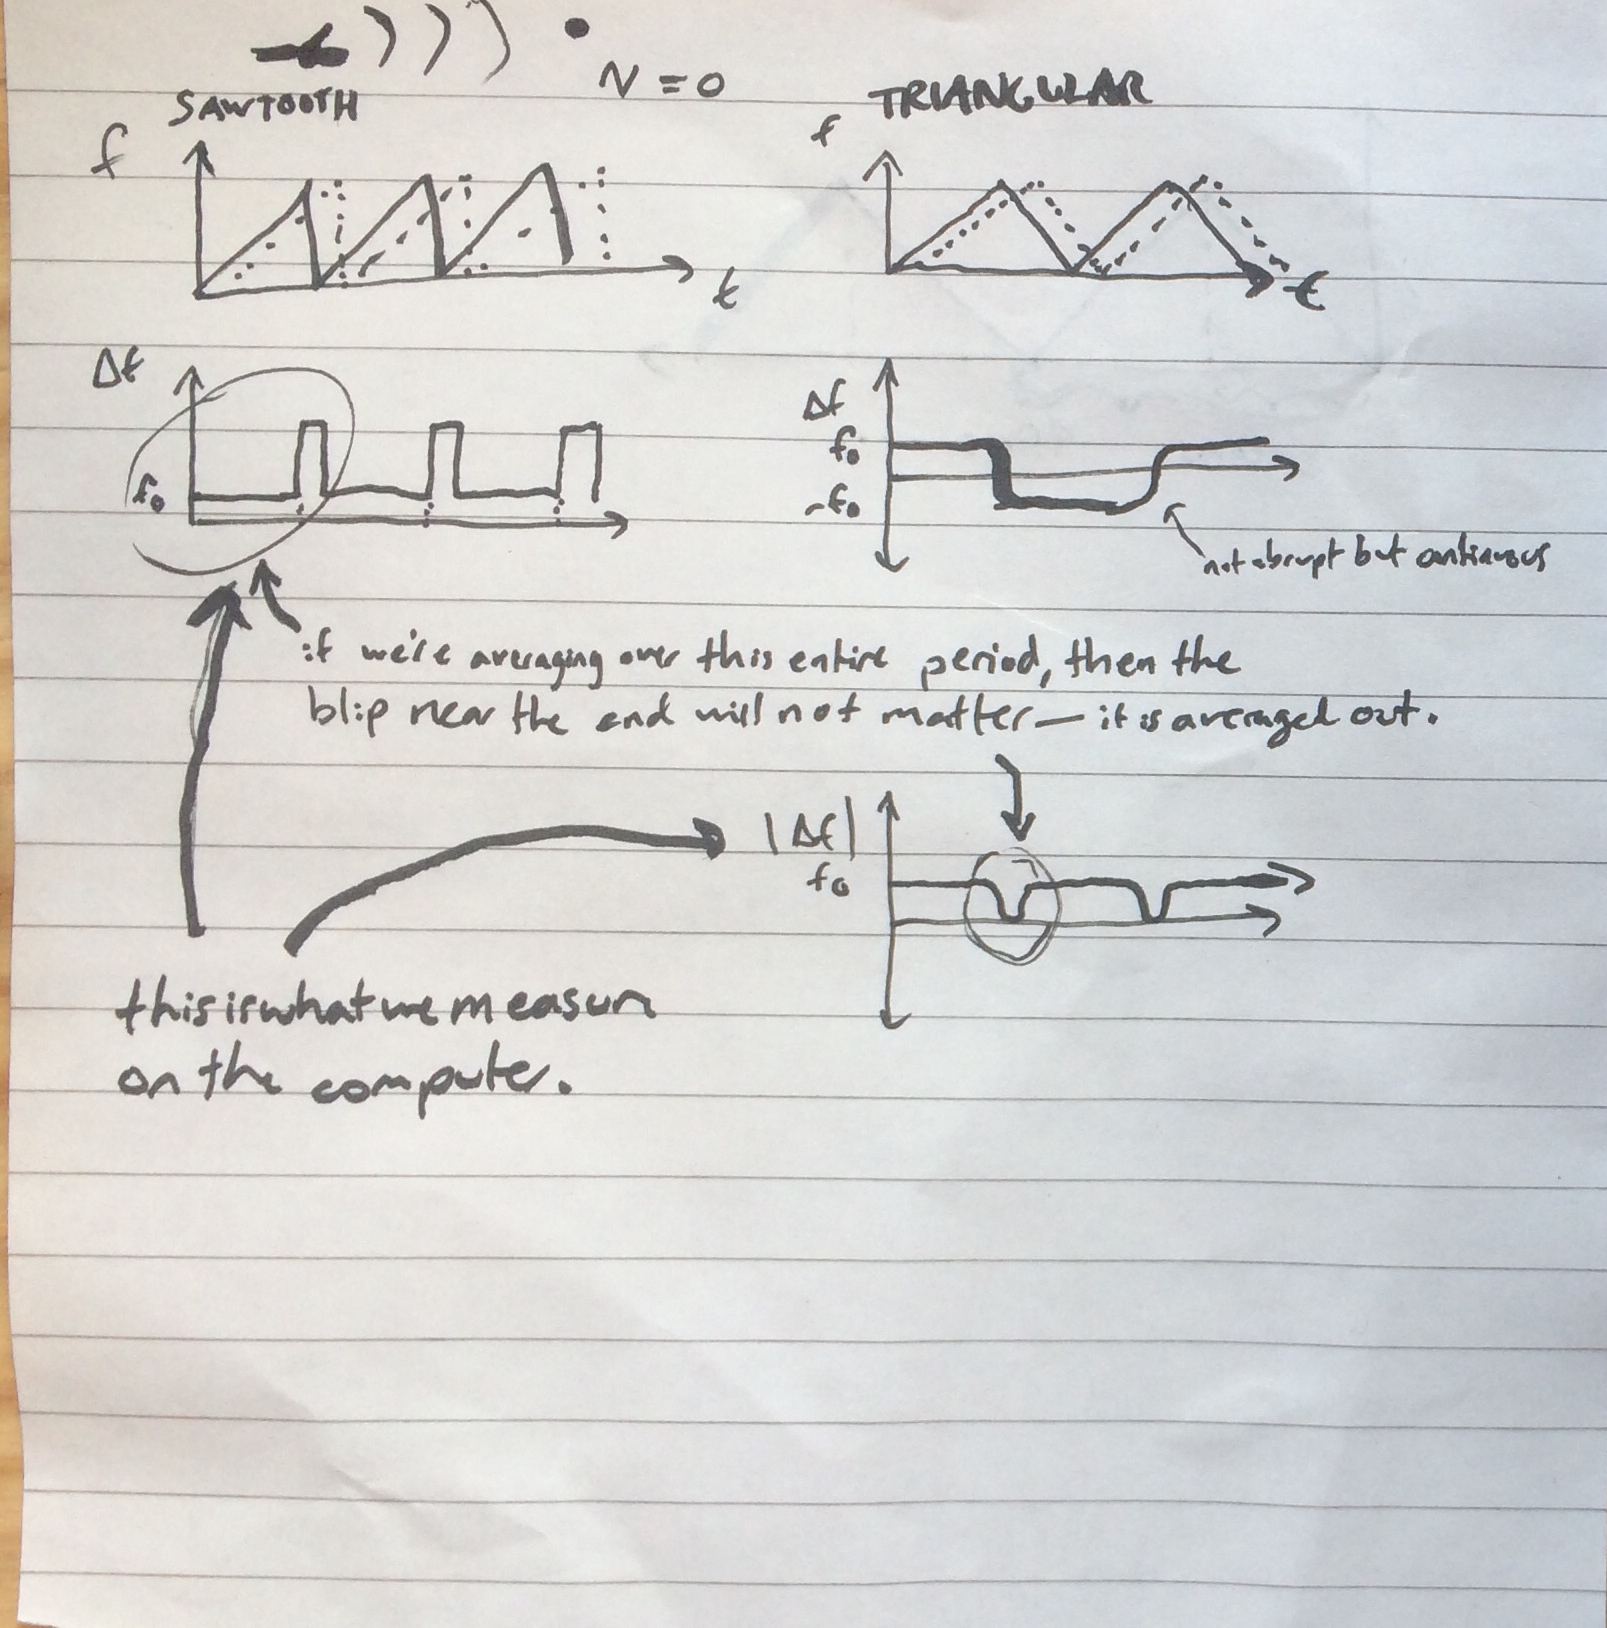 N = 0
SAWTOOTH
TRIANGULAR
f
t
f
t
Δf
f₀
Δf
f₀
-f₀
not abrupt but continuous
if we're averaging over this entire period, then the
blip near the end will not matter — it is averaged out.
|Δf|
f₀
this is what we measure
on the computer.